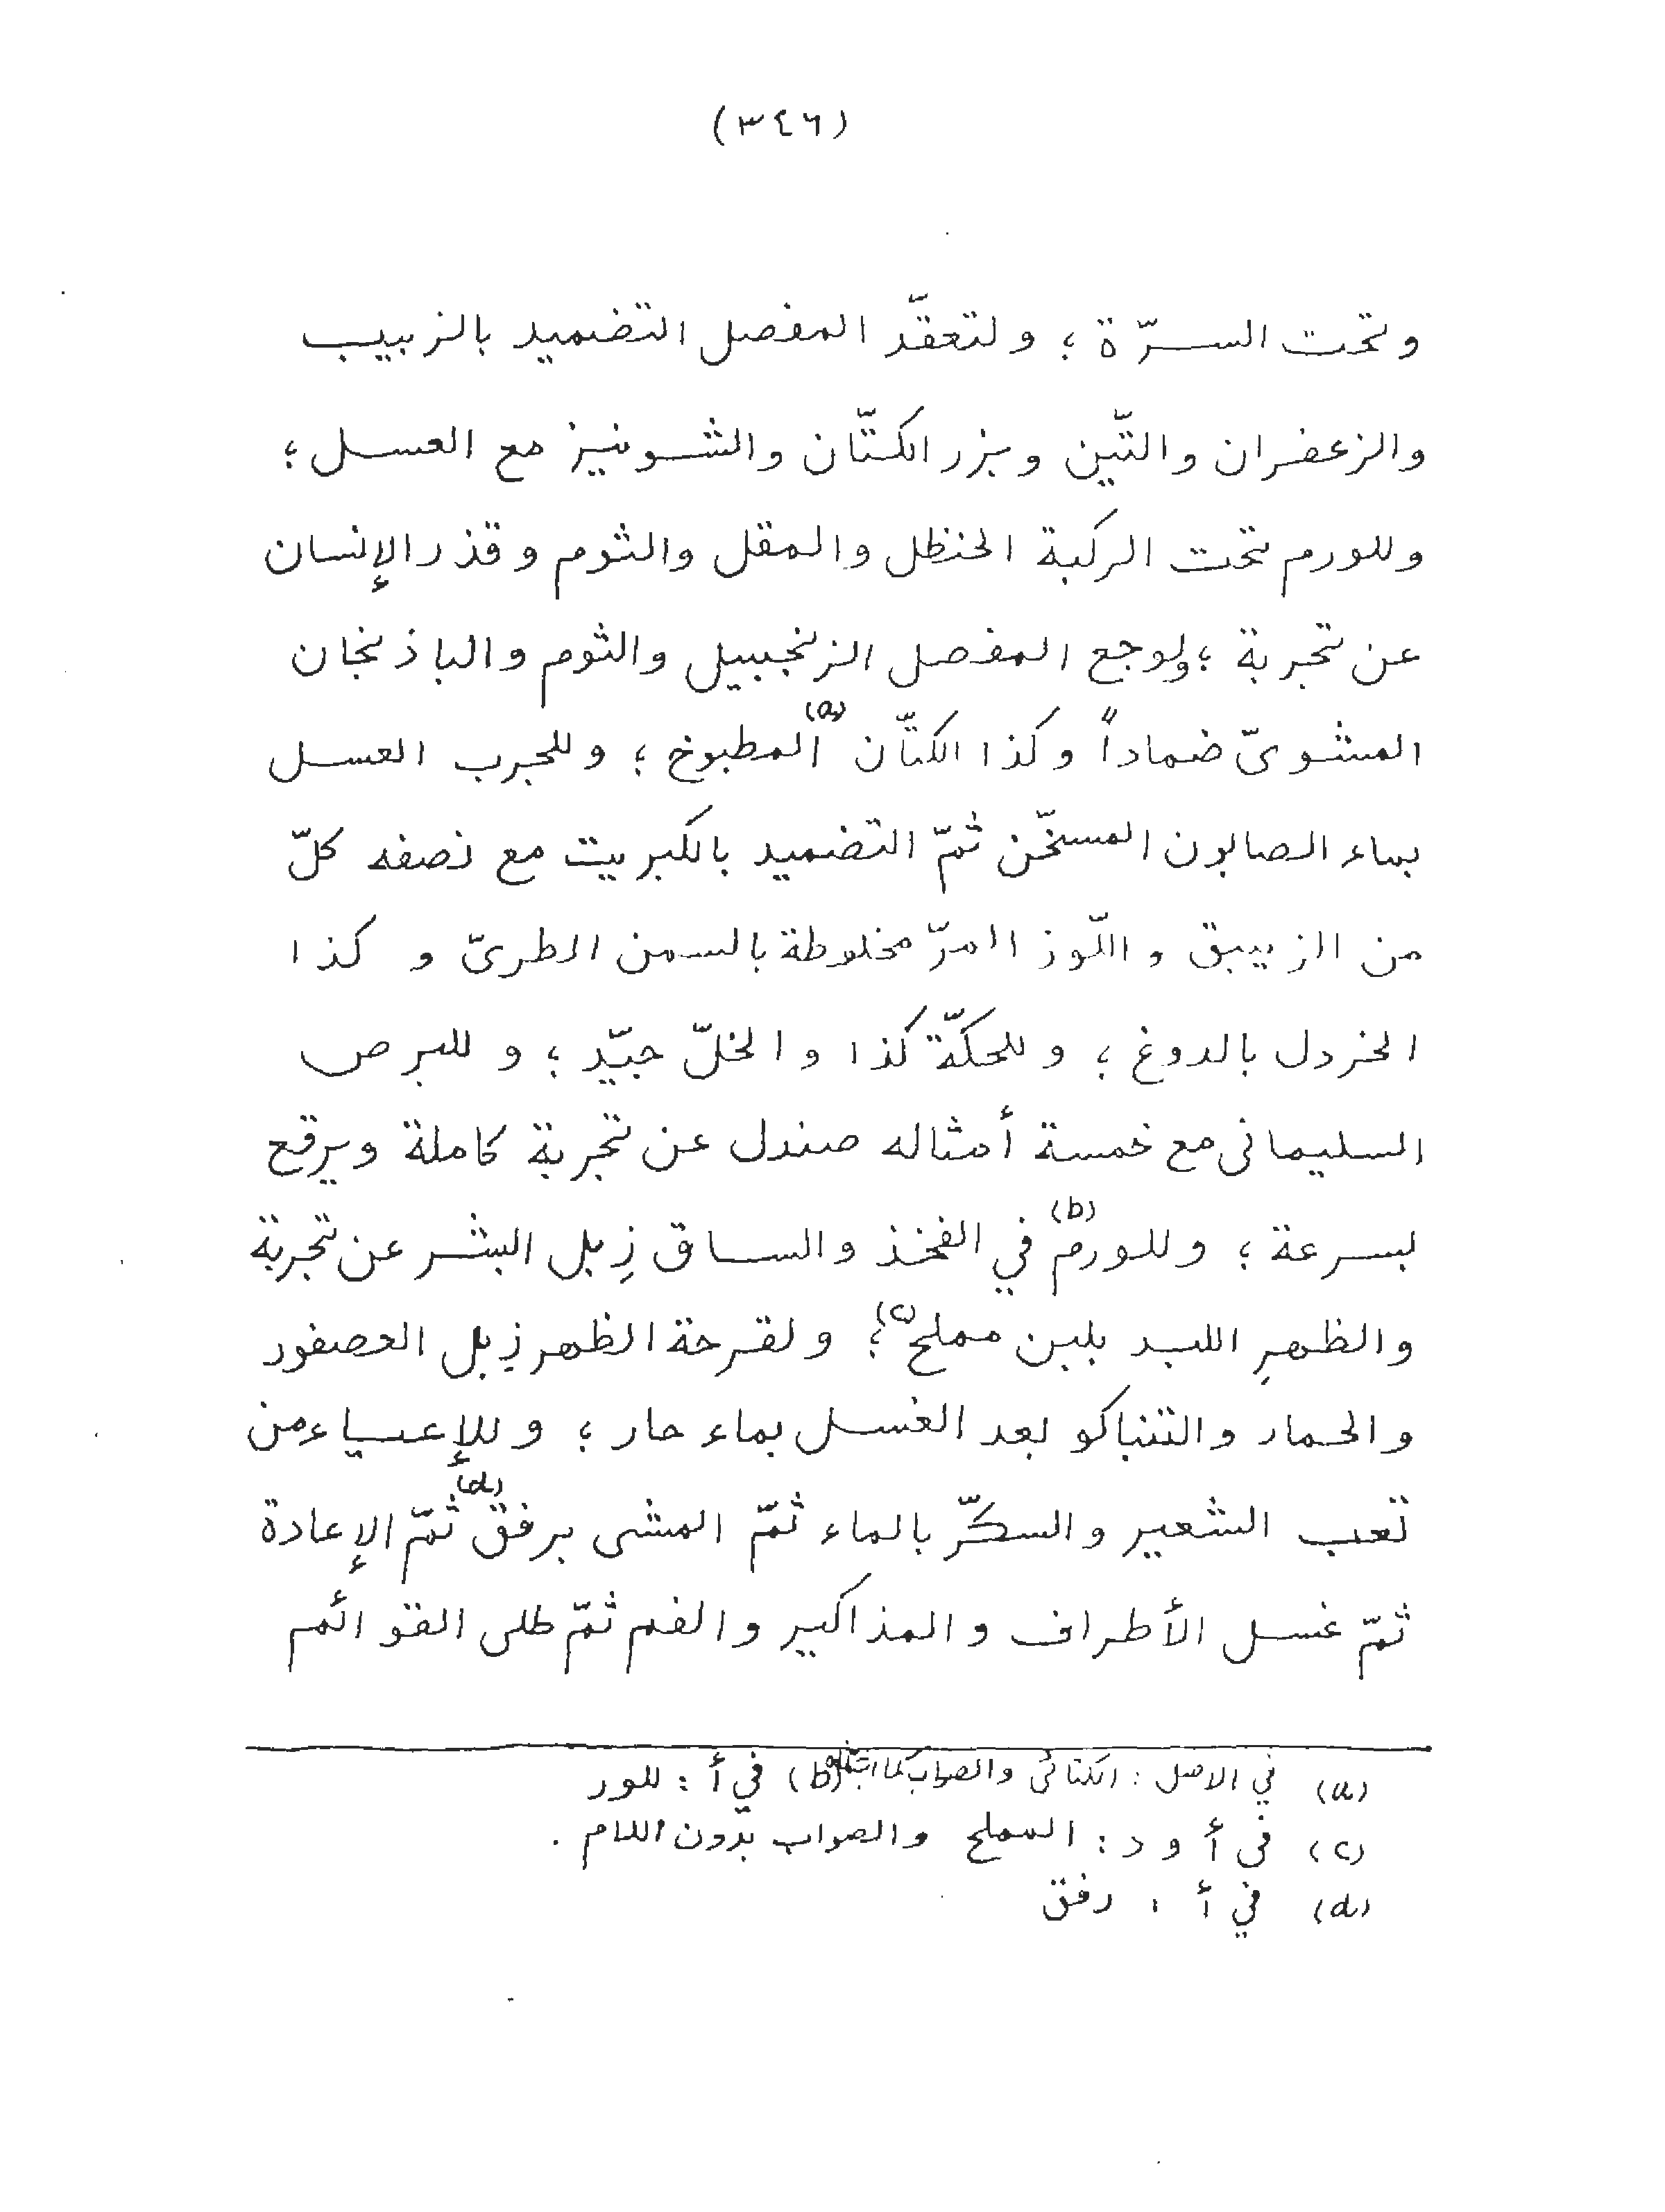 (٣٤٦)
وتحت السرّة ؛ ولتعقّد المفصل التضميد بالزبيب
والزعفران والتّين وبزر الكتّان والشونيز مع العسل ؛
وللورم تحت الركبة الحنظل والمقل والثوم وقذر الإنسان
عن تجربة ؛ ولوجع المفصل الزنجبيل والثوم والباذنجان
المشويّ ضماداً وكذا الكتّان (a) المطبوخ ؛ وللجرب العسل
بماء الصابون المسخّن ثمّ التضميد بالكبريت مع نصفه كلّ
من الزيبق واللّوز المرّ مخلوطة بالسمن الطريّ وكذا
الخردل بالدوغ ؛ وللحكّة كذا والخلّ جيّد ؛ وللبرص
السليماني مع خمسة أمثاله صندل عن تجربة كاملة ويرقع
بسرعة ؛ وللورم (b) في الفخذ والساق زِبل البشر عن تجربة
والظهرِ اللبد بلبن مملح (c) ؛ ولقرحة الظهر زِبل العصفور
والحمار والتنباكو بعد الغسل بماء حار ؛ وللإعياء من
تعب الشعير والسكّر بالماء ثمّ المشى برفق (d) ثمّ الإعادة
ثمّ غسل الأطراف والمذاكير والفم ثمّ طلى القوائم
(a) في الاصل : الكتائى والصواب كما اثبتناه (b) في أ : للور
(c) في أ و د : المملح والصواب بدون اللام .
(d) في أ : رفق